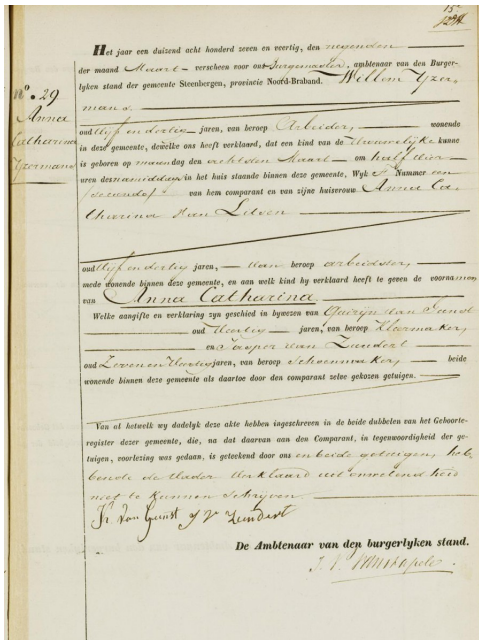 15
Het jaar een duizend acht honderd zeven en veertig, den negenden
der maand Maart verscheen voor ons Burgemeester, ambtenaar van den Burger-
lyken stand der gemeente Steenbergen, provincie Noord-Braband. Willem Yzer-
mans
N.º 29
Anna
Catharina
Yzermans
oud vyf en dertig jaren, van beroep Arbeider, wonende
in deze gemeente, dewelke ons heeft verklaard, dat een kind van de Vrouwelyke kunne
is geboren op maandag den achtsten Maart om half vier
uren des namiddags in het huis staande binnen deze gemeente, Wyk Nummer een
van hem comparant en van zijne huisvrouw Anna Ca-
tharina van
oud vyf en dertig jaren, van beroep arbeidster,
mede wonende binnen deze gemeente, en aan welk kind hy verklaard heeft te geven de voornamen
van Anna Catharina.
Welke aangifte en verklaring zyn geschied in bywezen van Quirijn van Gunst
oud veertig jaren, van beroep Kleermaker,
en Jasper van Zundert
oud Zeven en Veertig jaren, van beroep Schoenmaker, beide
wonende binnen deze gemeente als daartoe door den comparant zelve gekozen getuigen.
Van al hetwelk wy dadelyk deze akte hebben ingeschreven in de beide dubbelen van het Geboorte-
register dezer gemeente, die, na dat daarvan aan den Comparant, in tegenwoordigheid der ge-
tuigen, voorlezing was gedaan, is geteekend door ons en beide getuigen, heb-
bende de Vader verklaard uit onwetendheid
niet te kunnen Schryven.
Kr van Gunst J V Zundert
De Ambtenaar van den burgerlyken stand.